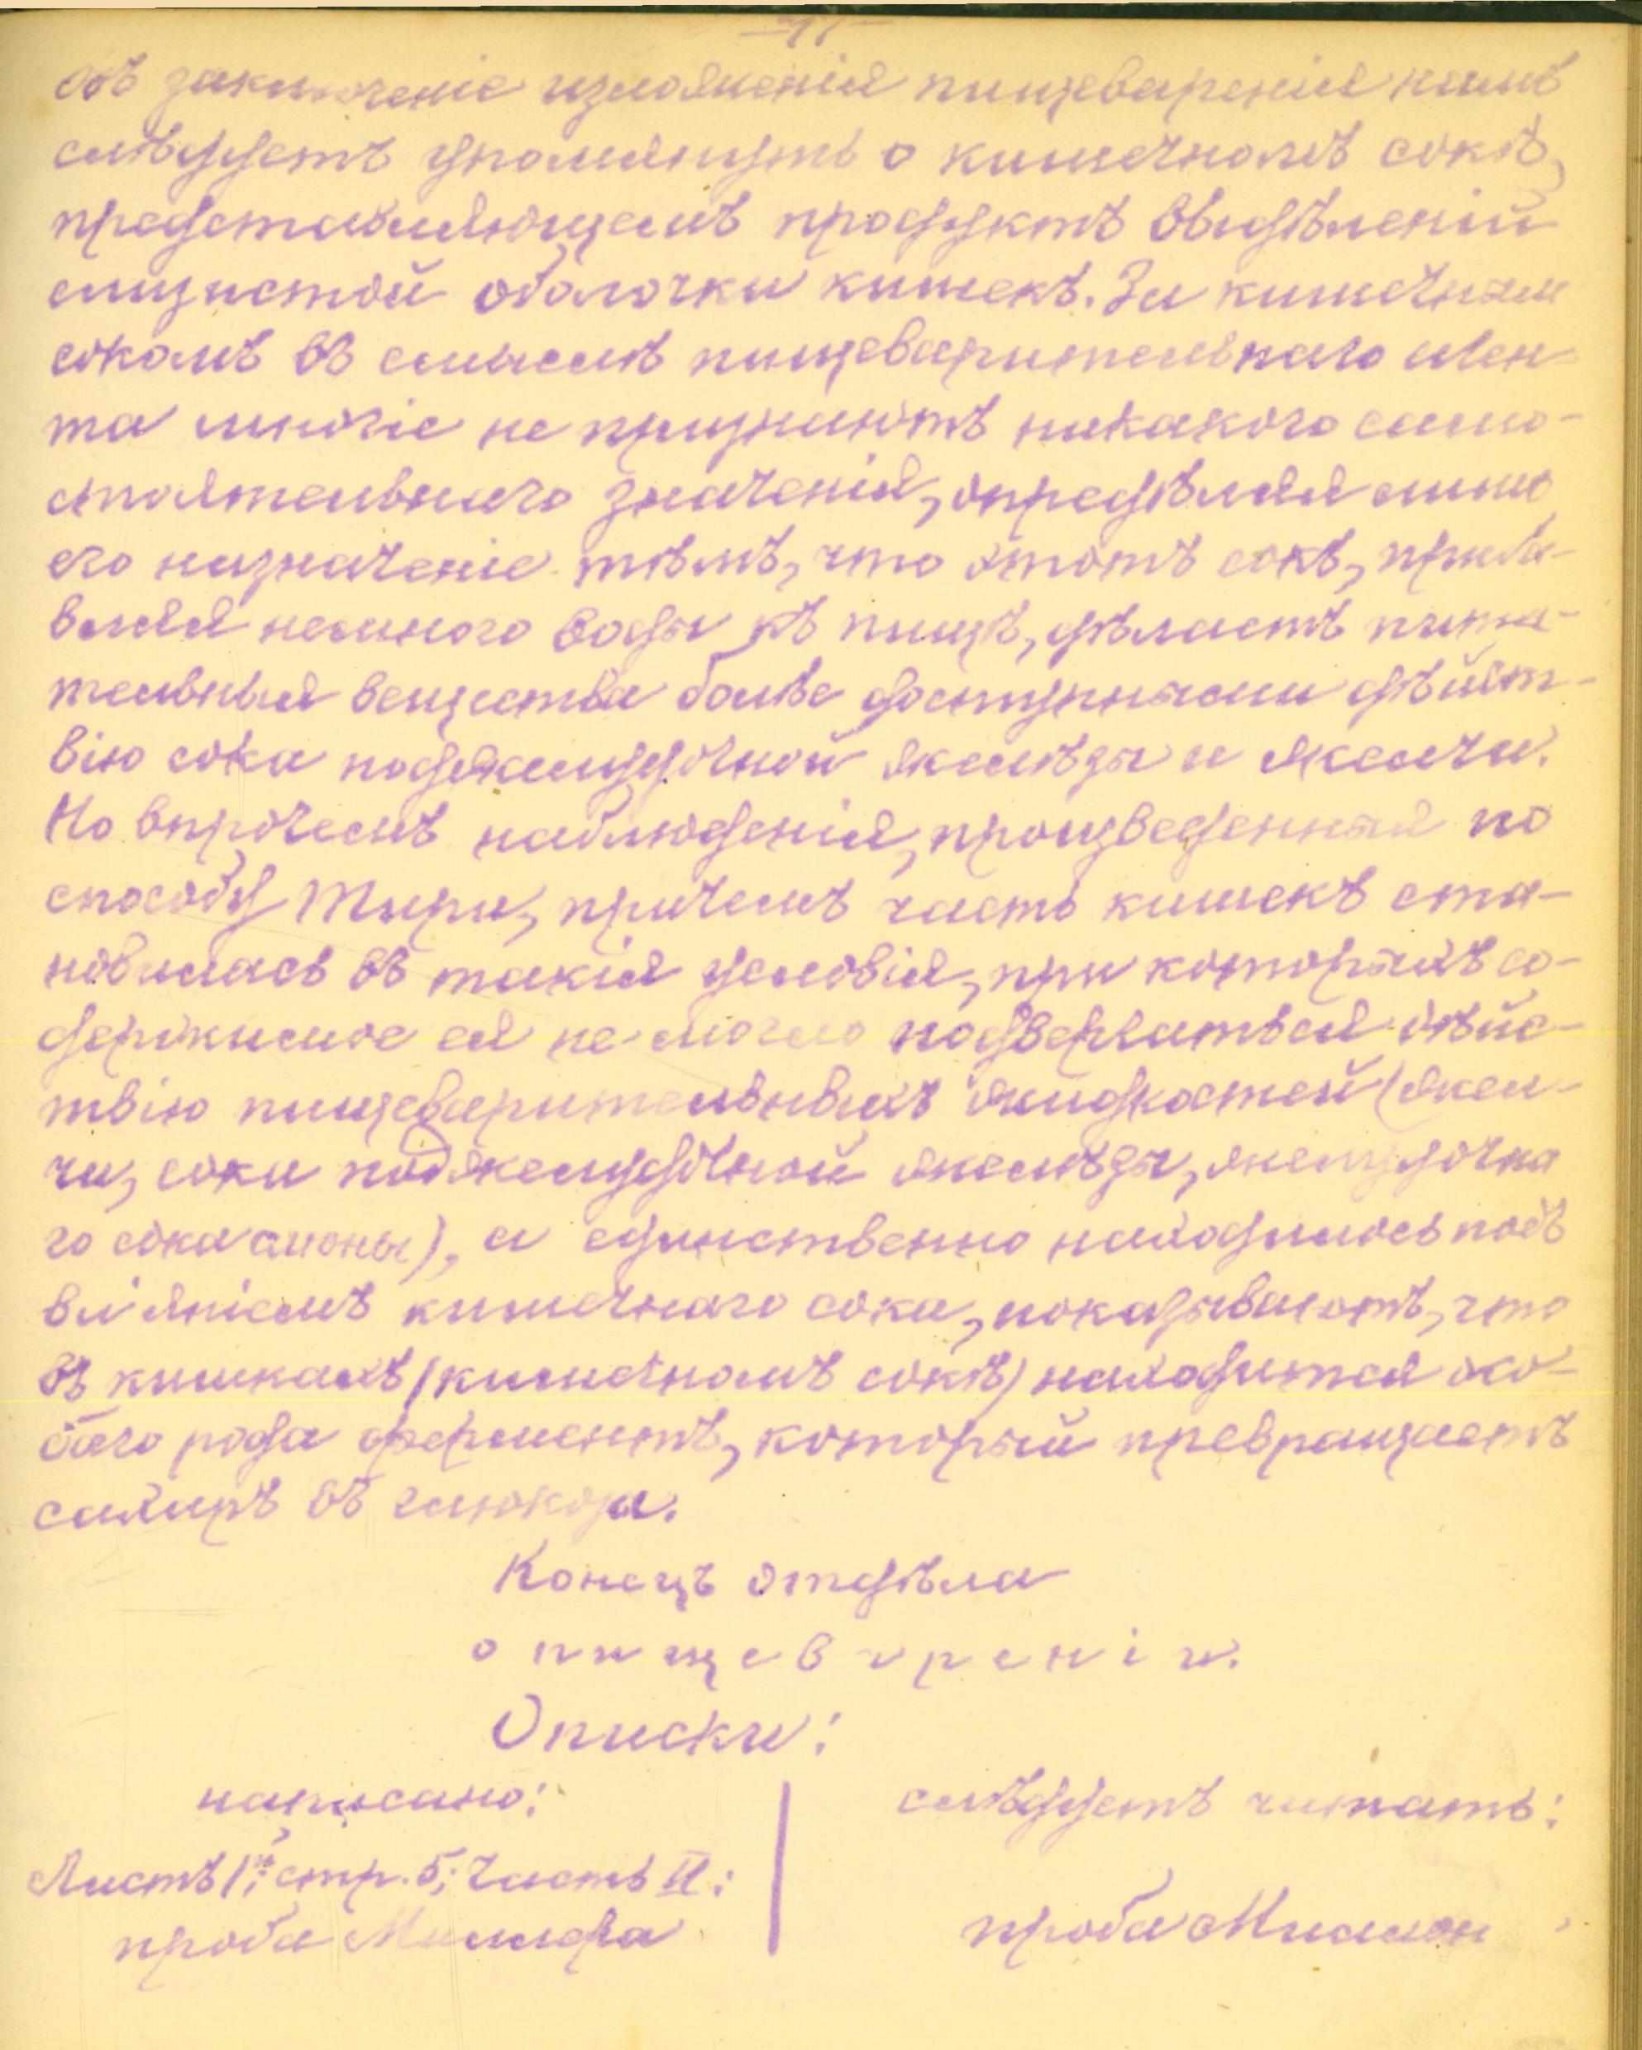 Въ заключеніе изложенія пищеваренія намъ
слѣдуетъ упомянуть о кишечномъ сокѣ,
представляющемъ продуктъ выдѣленій
слизистой оболочки кишекъ. За кишечнымъ
сокомъ въ смыслѣ пищеварительнаго аген-
та многіе не признаютъ никакого само-
стоятельнаго значенія, опредѣляя лишь
его назначеніе тѣмъ, что этотъ сокъ, приба-
вляя немного воды къ пищѣ, дѣлаетъ пита-
тельныя вещества болѣе доступными дѣйст-
вію сока поджелудочной железы и желчи.
Но впрочемъ наблюденія, произведенныя по
способу Тири, причемъ часть кишекъ ста-
новилась въ такія условія, при которыхъ со-
держимое ея не могло подвергаться дѣйс-
твію пищеварительныхъ жидкостей (жел-
чи, сока поджелудочной желѣзы, желудочна
го сока слюны), а единственно находилось подъ
вліяніемъ кишечнаго сока, показываютъ, что
въ кишкахъ (кишечномъ сокѣ) находится осо-
баго рода ферментъ, который превращаетъ
сахаръ въ глюкоза.
Конецъ отдѣла
о пищевареніи.
Описки:
написано:
слѣдуетъ читать:
Листъ 1й; стр. 5; Часть II:
проба Миллера
проба Миллон